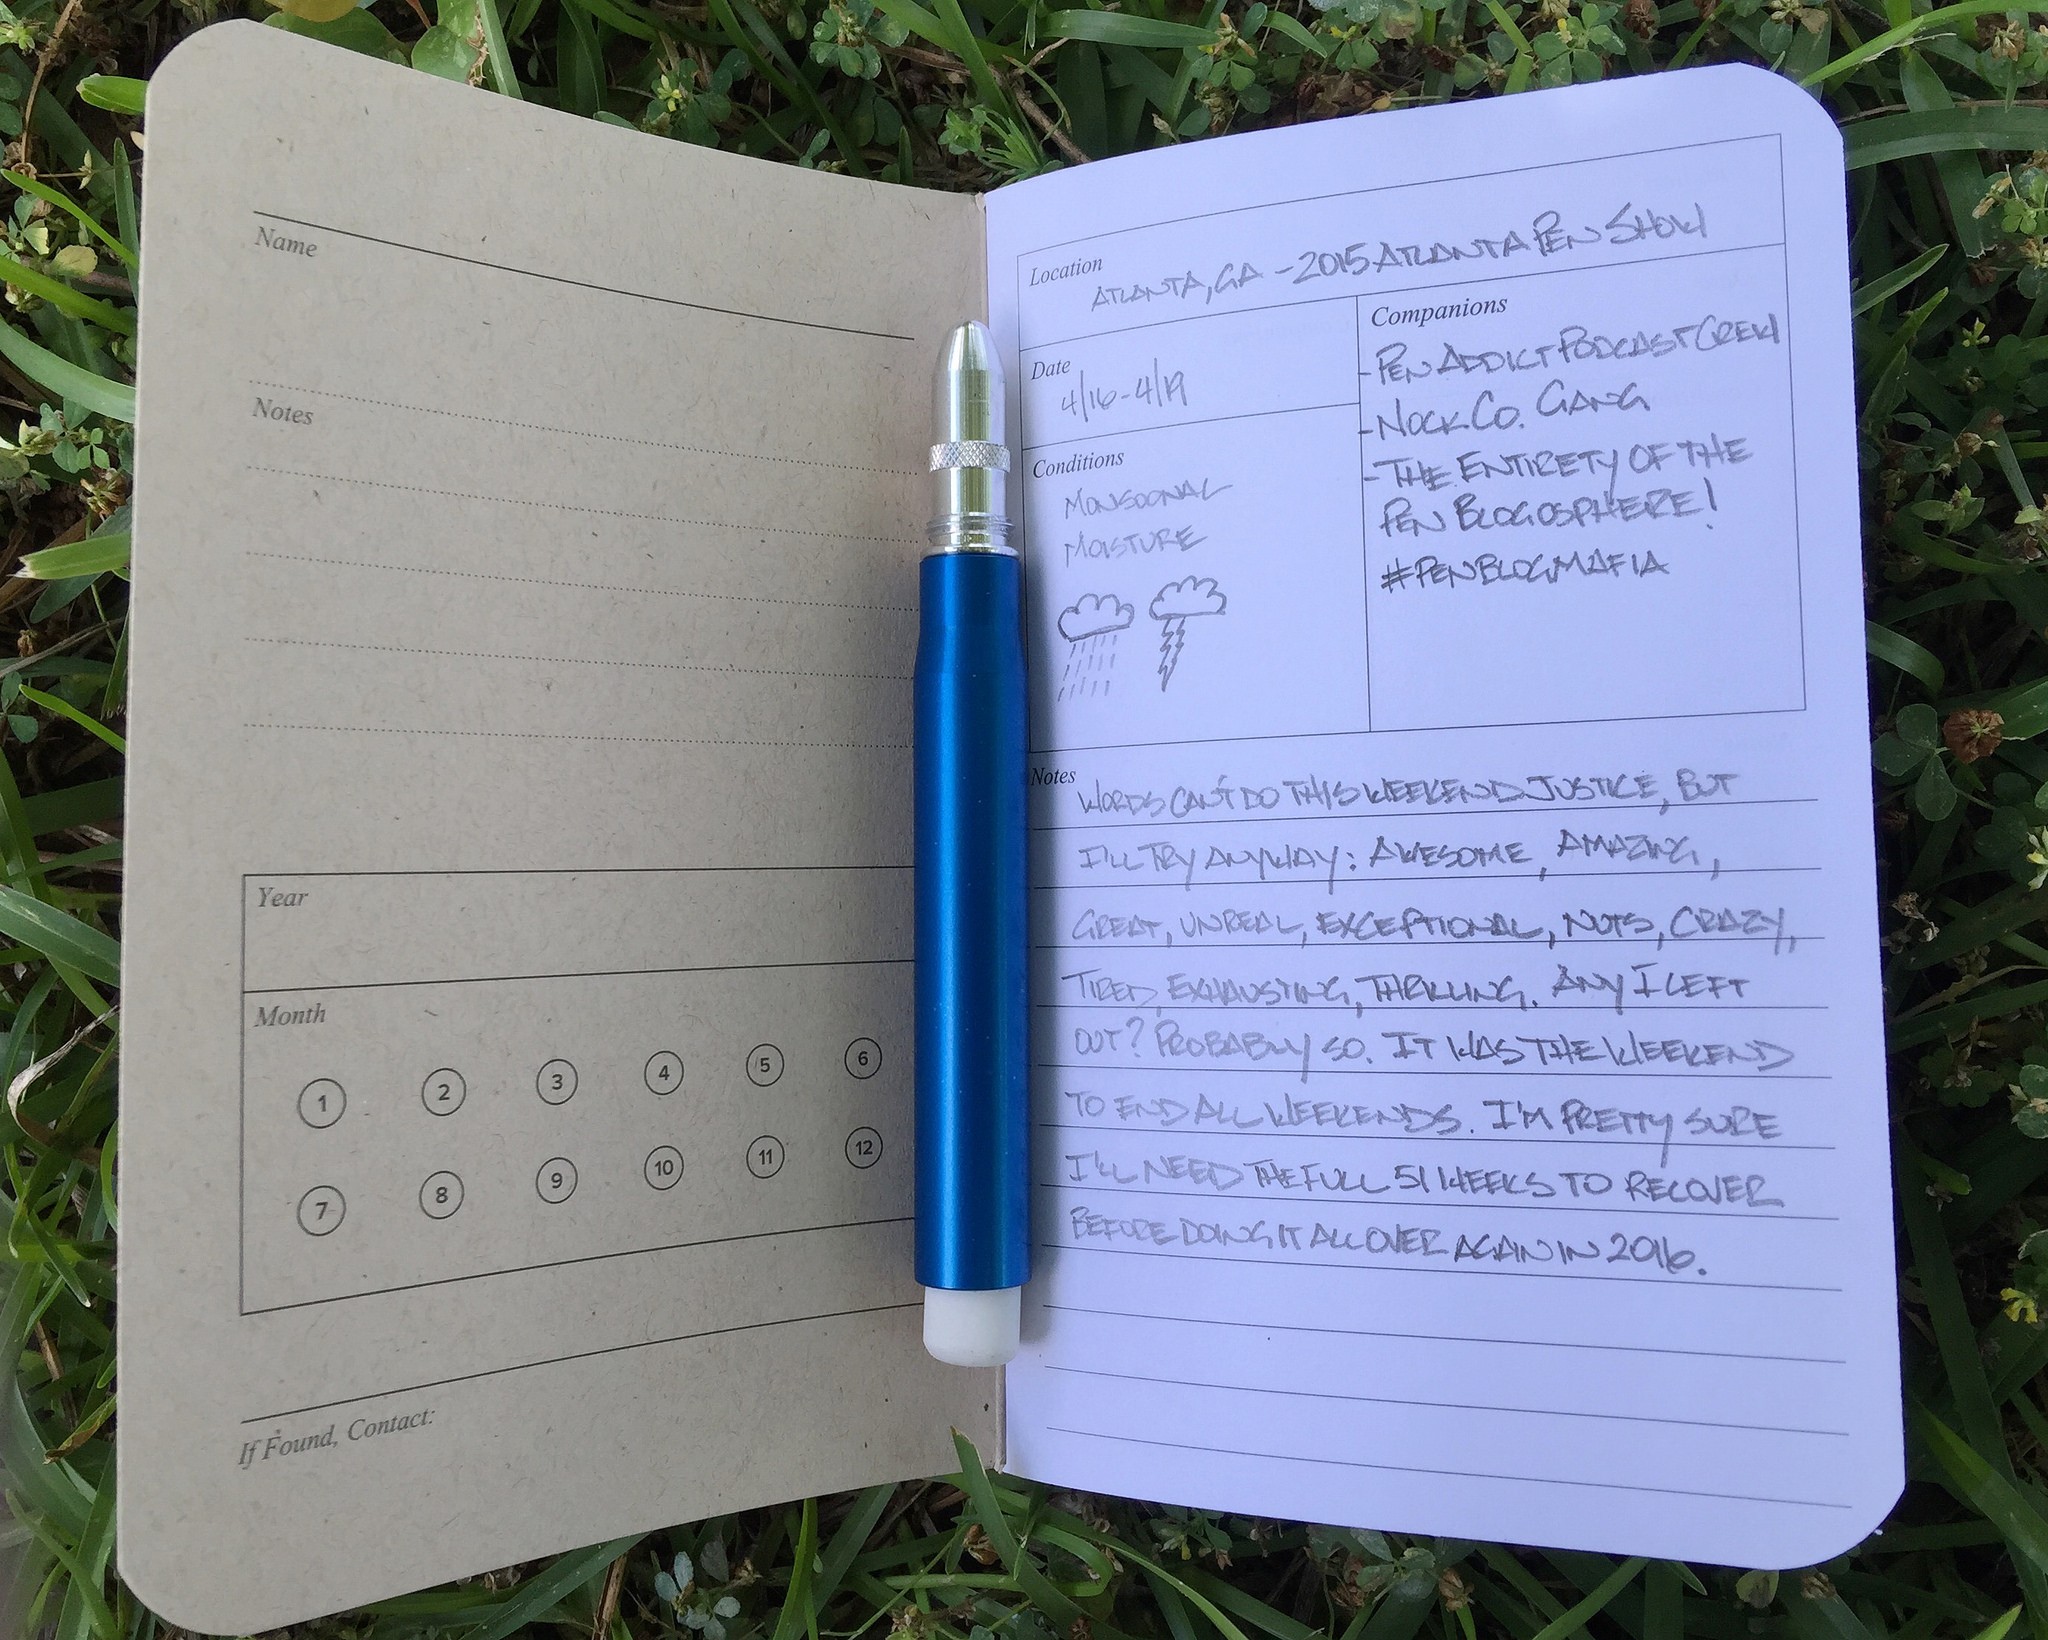 Name
Notes
Year
Month
1 2 3 4 5 6
7 8 9 10 11 12
If Found, Contact:
Location
ATLANTA, GA - 2015 ATLANTA PEN SHOW
Date
4/16-4/19
Conditions
MONSOONAL
MOISTURE
Companions
- PEN ADDICT PODCAST CREW
- NOCK CO. GANG
- THE ENTIRETY OF THE
PEN BLOGOSPHERE!
#PENBLOGMAFIA
Notes
WORDS CAN'T DO THIS WEEKEND JUSTICE, BUT
I'LL TRY ANYWAY: AWESOME, AMAZING,
GREAT, UNREAL, EXCEPTIONAL, NUTS, CRAZY,
TIRED, EXHAUSTING, THRILLING. ANY I LEFT
OUT? PROBABLY SO. IT WAS THE WEEKEND
TO END ALL WEEKENDS. I'M PRETTY SURE
I'LL NEED THE FULL 51 WEEKS TO RECOVER
BEFORE DOING IT ALL OVER AGAIN IN 2016.